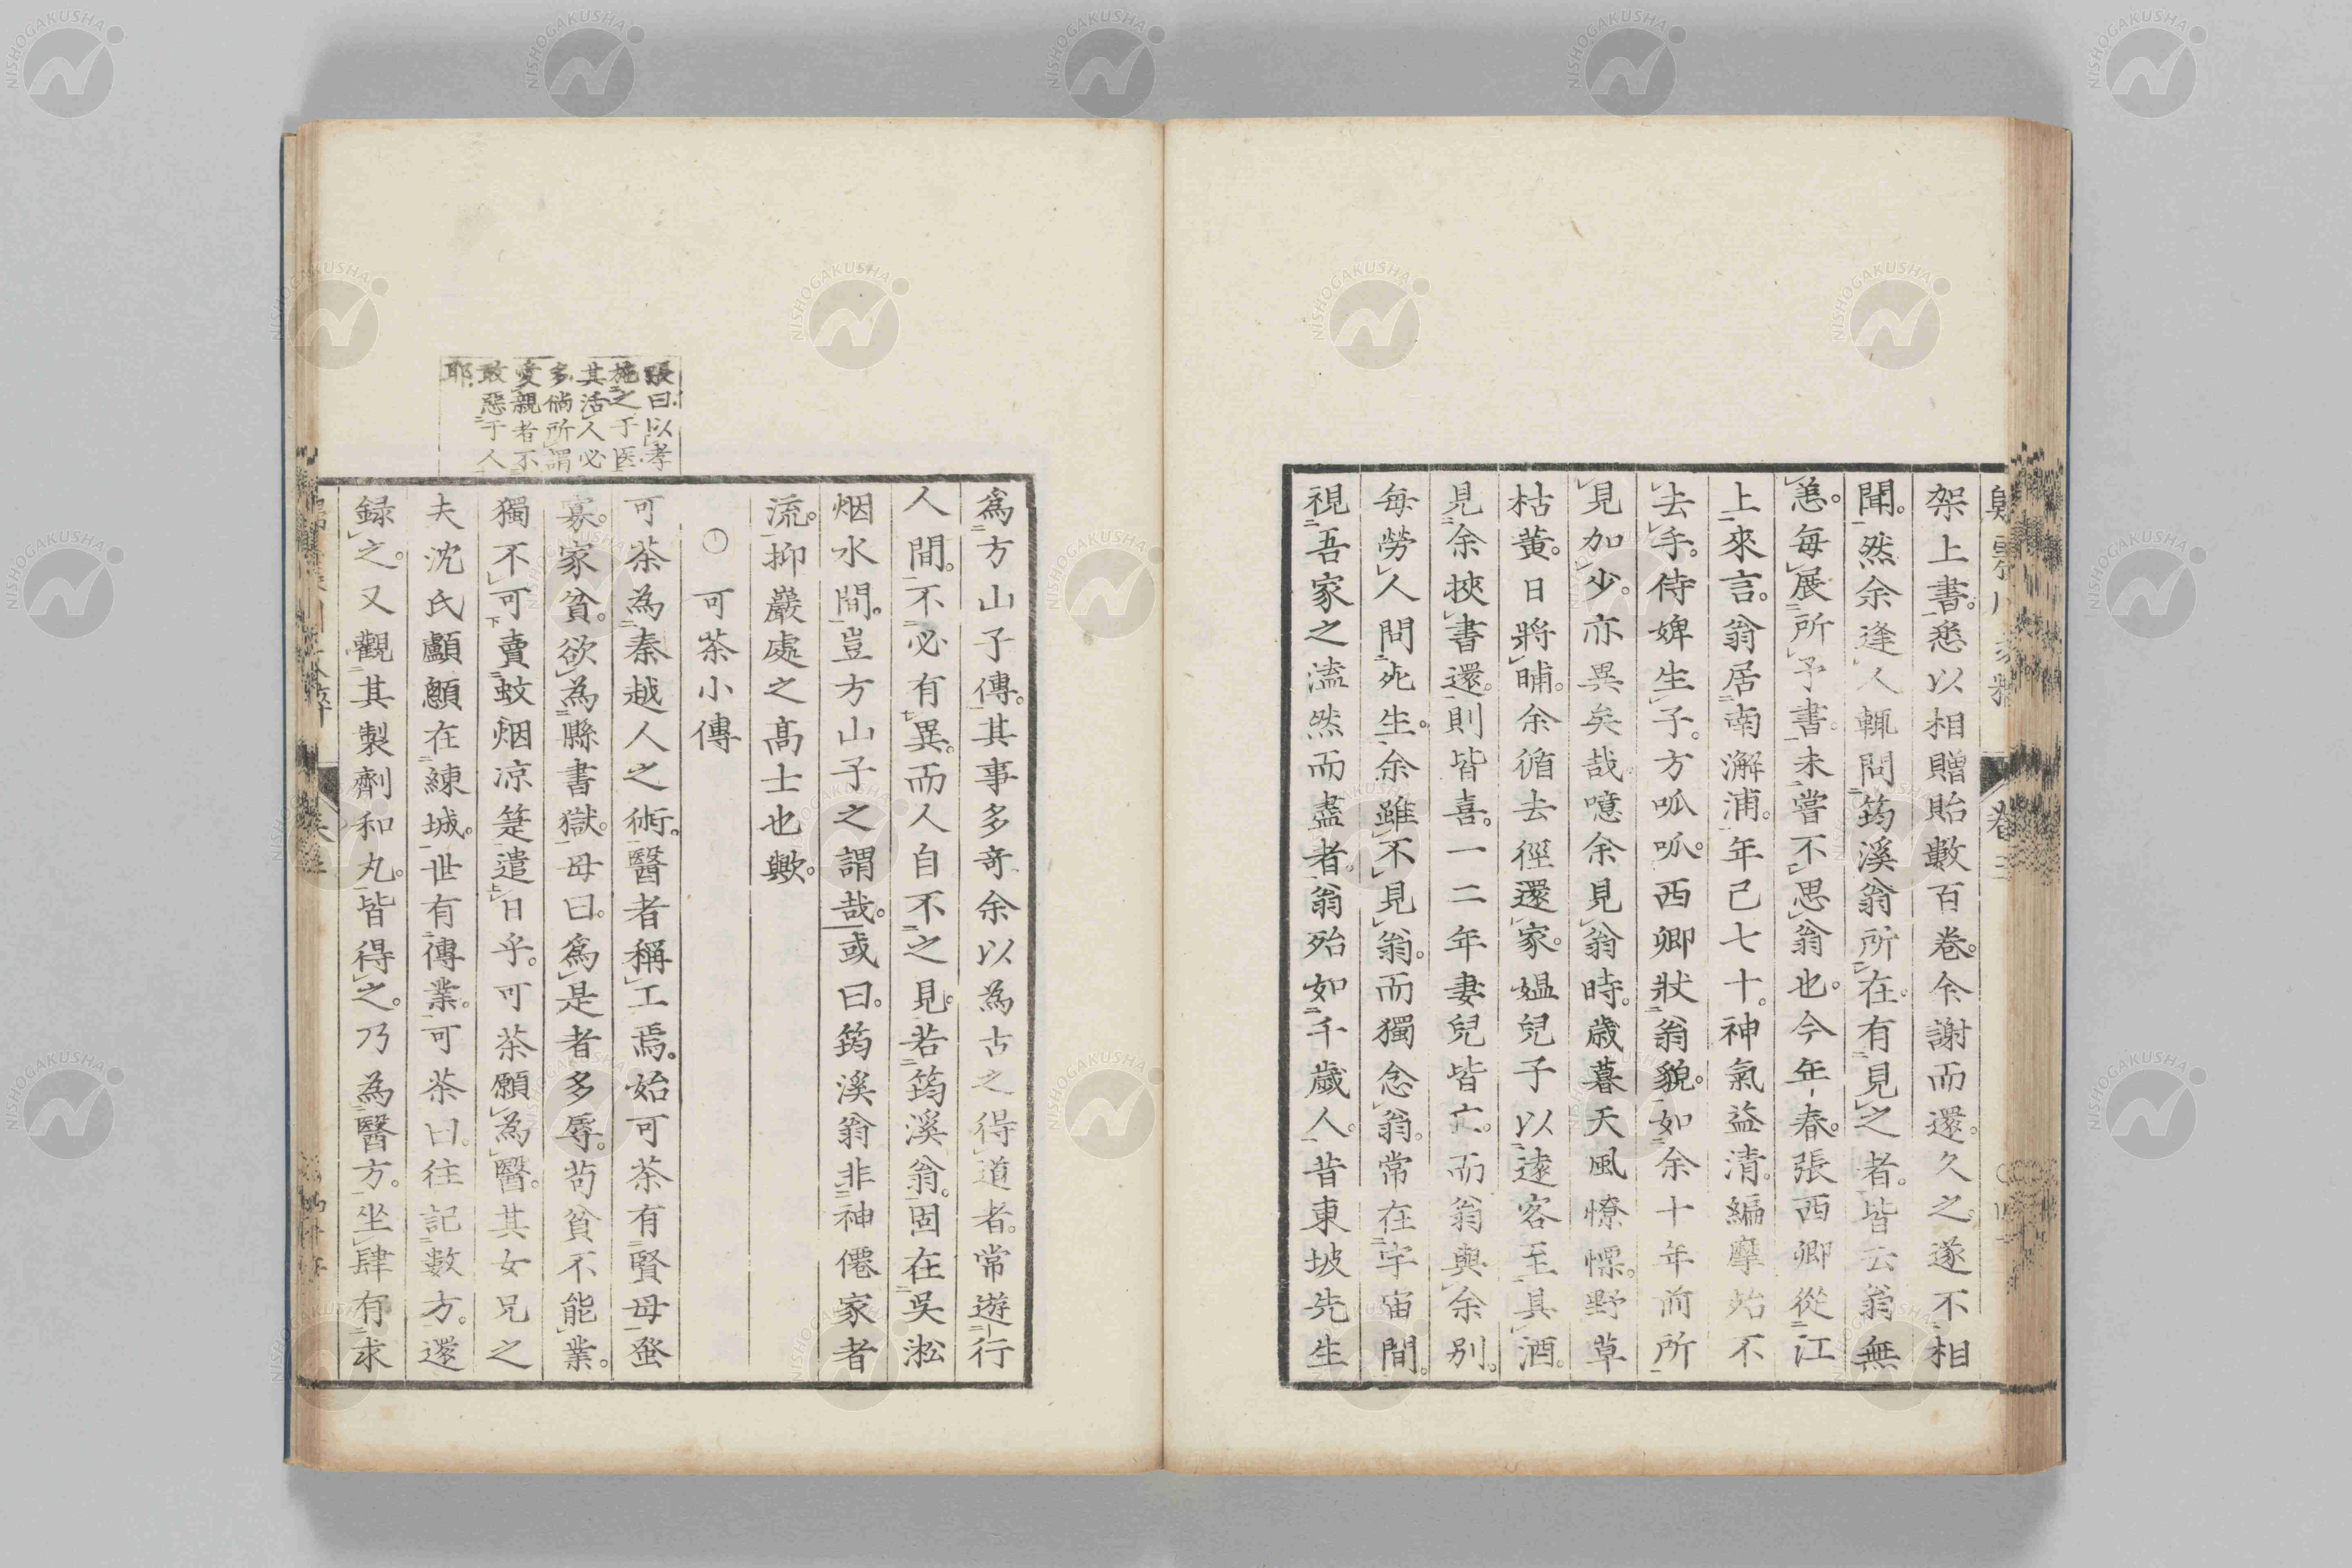 架上書。悉以相贈貽數百卷。余謝而還。久之。遂不相
聞。然余逢人輒問筠溪翁所在。有見之者。皆云翁無
恙。每展所予書。未嘗不思翁也。今年春。張西卿從江
上來言。翁居南澥浦。年已七十。神氣益清。編摩殆不
去手。侍婢生子。方呱呱。西卿狀翁貌。如余十年前所
見加少。亦異矣哉。噫余見翁時。歲暮天風憭慄。野草
枯黃。日將晡。余循去徑還家。媼兒子以遠客至。具酒。
見余挾書還。則皆喜。一二年妻兒皆亡。而翁與余別。
每勞人問死生。余雖不見翁。而獨念翁。常在宇宙間。
視吾家之溘然而盡者。翁殆如千歲人。昔東坡先生
為方山子傳。其事多奇余以為古之得道者。常遊行
人間。不必有異。而人自不之見。若筠溪翁。固在吳淞
烟水間。豈方山子之謂哉。或曰。筠溪翁非神僊家者
流。抑巖處之高士也歟。
○可茶小傳
可茶為秦越人之術。醫者稱工焉。始可茶有賢母。蚤
寡。家貧。欲為縣書獄。母曰。為是者多辱。苟貧不能業。
獨不可賣蚊烟凉箑遣日乎。可茶願為醫。其女兄之
夫沈氏顱顖在練城。世有傳業。可茶曰。往記數方。還
錄之。又觀其製劑和丸。皆得之。乃為醫方。坐肆有求
張曰。以孝
施之于医。
其活人必
多。倘所謂
愛親者不
敢惡于人
耶。